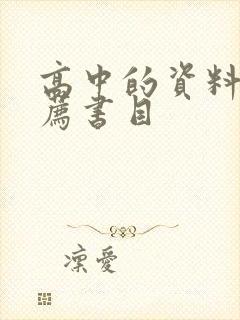 高中的資料
薦書目
凜愛